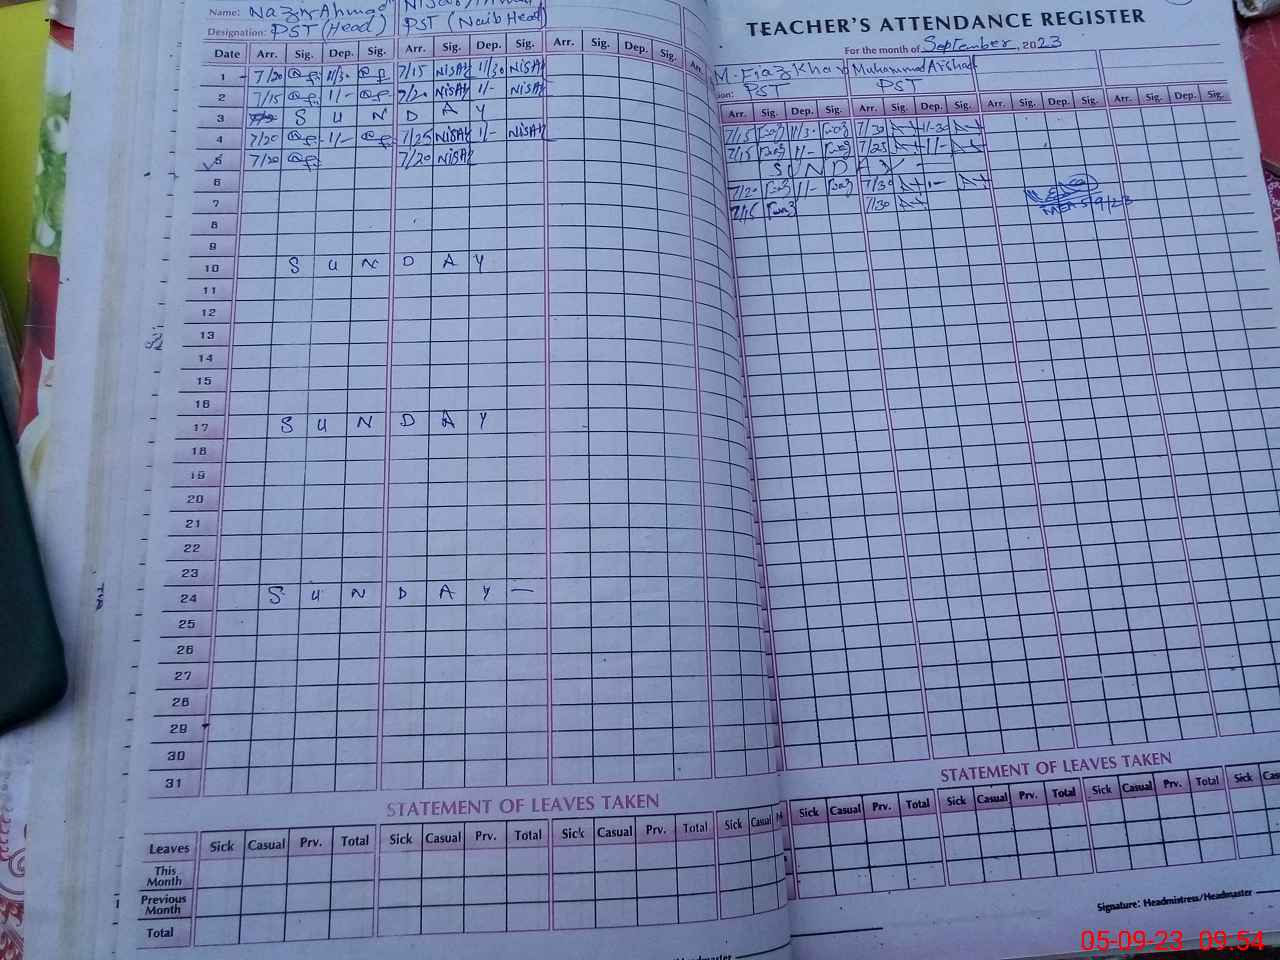 Name: Nazir Ahmad
Designation: PST (Head) PST (Naib Head)
Date Arr. Sig. Dep. Sig. Arr. Sig. Dep. Sig. Arr. Sig. Dep. Sig. Arr.
1 7/20 11/30 7/15 NISAR 11/30 NISAR
2 7/15 11/- 7/20 NISAR 11/- NISAR
3 S U N D A Y
4 7/20 11/- 7/25 NISAR 11/- NISAR
5 7/20 7/20 NISAR
6
7
8
9
10 S U N D A Y
11
12
13
14
15
16
17 S U N D A Y
18
19
20
21
22
23
24 S U N D A Y —
25
26
27
28
29
30
31
STATEMENT OF LEAVES TAKEN
Leaves Sick Casual Prv. Total Sick Casual Prv. Total Sick Casual Prv. Total Sick Casual
This Month
Previous Month
Total
TEACHER'S ATTENDANCE REGISTER
For the month of September, 2023
M. Fiaz Khan Muhammad Arshad
PST PST
Arr. Sig. Dep. Sig. Arr. Sig. Dep. Sig. Arr. Sig. Dep. Sig. Arr. Sig. Dep. Sig.
7/15 11/30 7/30 11-30
7/15 11/- 7/25 11/-
S U N D A Y -
7/20 11/- 7/30
7/15 7/30
5/9/23
STATEMENT OF LEAVES TAKEN
Sick Casual Prv. Total Sick Casual Prv. Total Sick Casual Prv. Total Sick
Signature: Headmistress/Headmaster
05-09-23 09:54